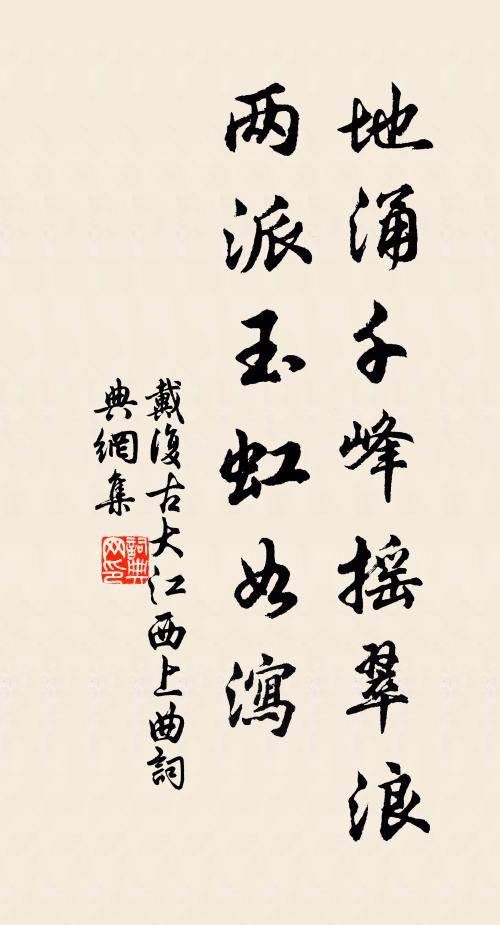 地涌千峰摇翠浪
两派玉虹如泻
戴復古大江西上曲詞
典網集
詞典网印